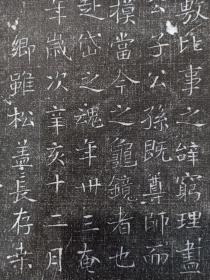 敷比事之辝窮理盡
公子公孫既尊師而
摸當今之龜鏡者也
赴岱之魂年卅三奄
年歲次辛亥十二月
鄉雖松蓋長存桒